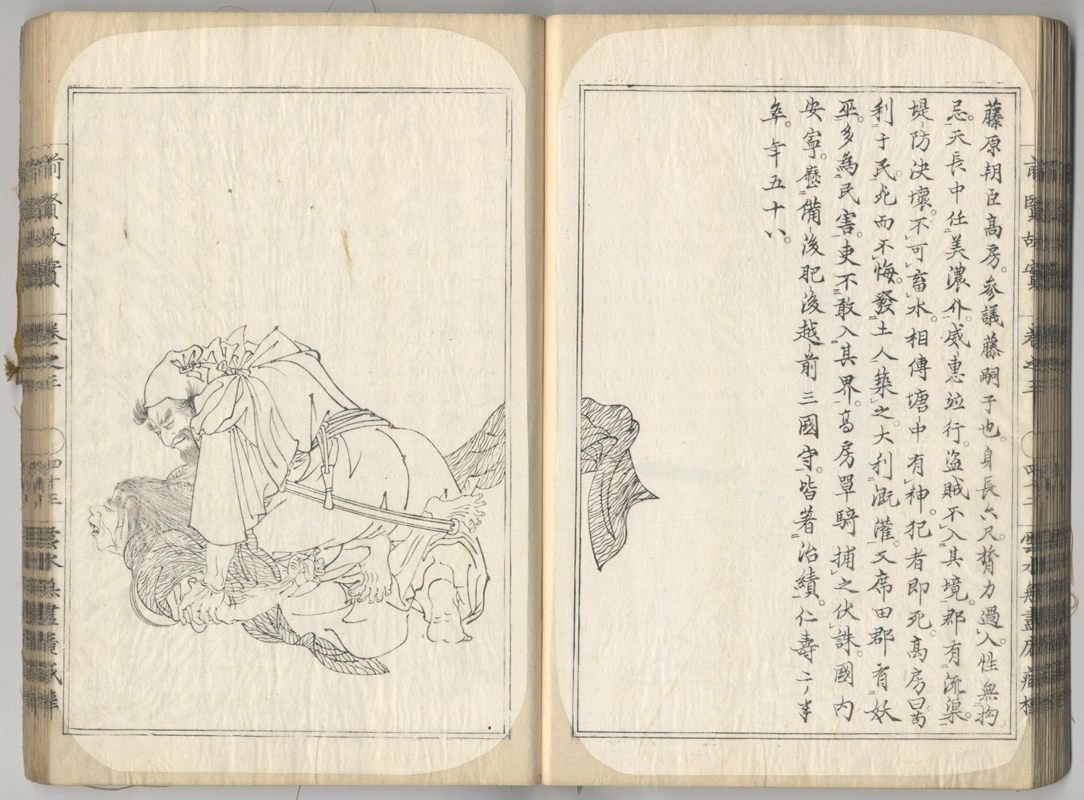 藤原朝臣高房。參議藤嗣子也。身長六尺膂力過人性無拘
忌。天長中任美濃介。威惠竝行。盜賊不入其境。郡有流渠。
堤防決壞。不可畜水。相傳塘中有神。犯者即死。高房曰苟
利于民。死而不悔。發土人築之。大利溉灌。又席田郡有妖
巫。多為民害。吏不敢入其界。高房單騎捕之伏誅。國内
安寧。歷備後肥後越前三國守。皆著治績。仁壽二年
卒。年五十八。
前賢故實 卷之三 四十二 雲水無盡庵藏梓
前賢故實 卷之三 四十三 雲水無盡庵藏梓